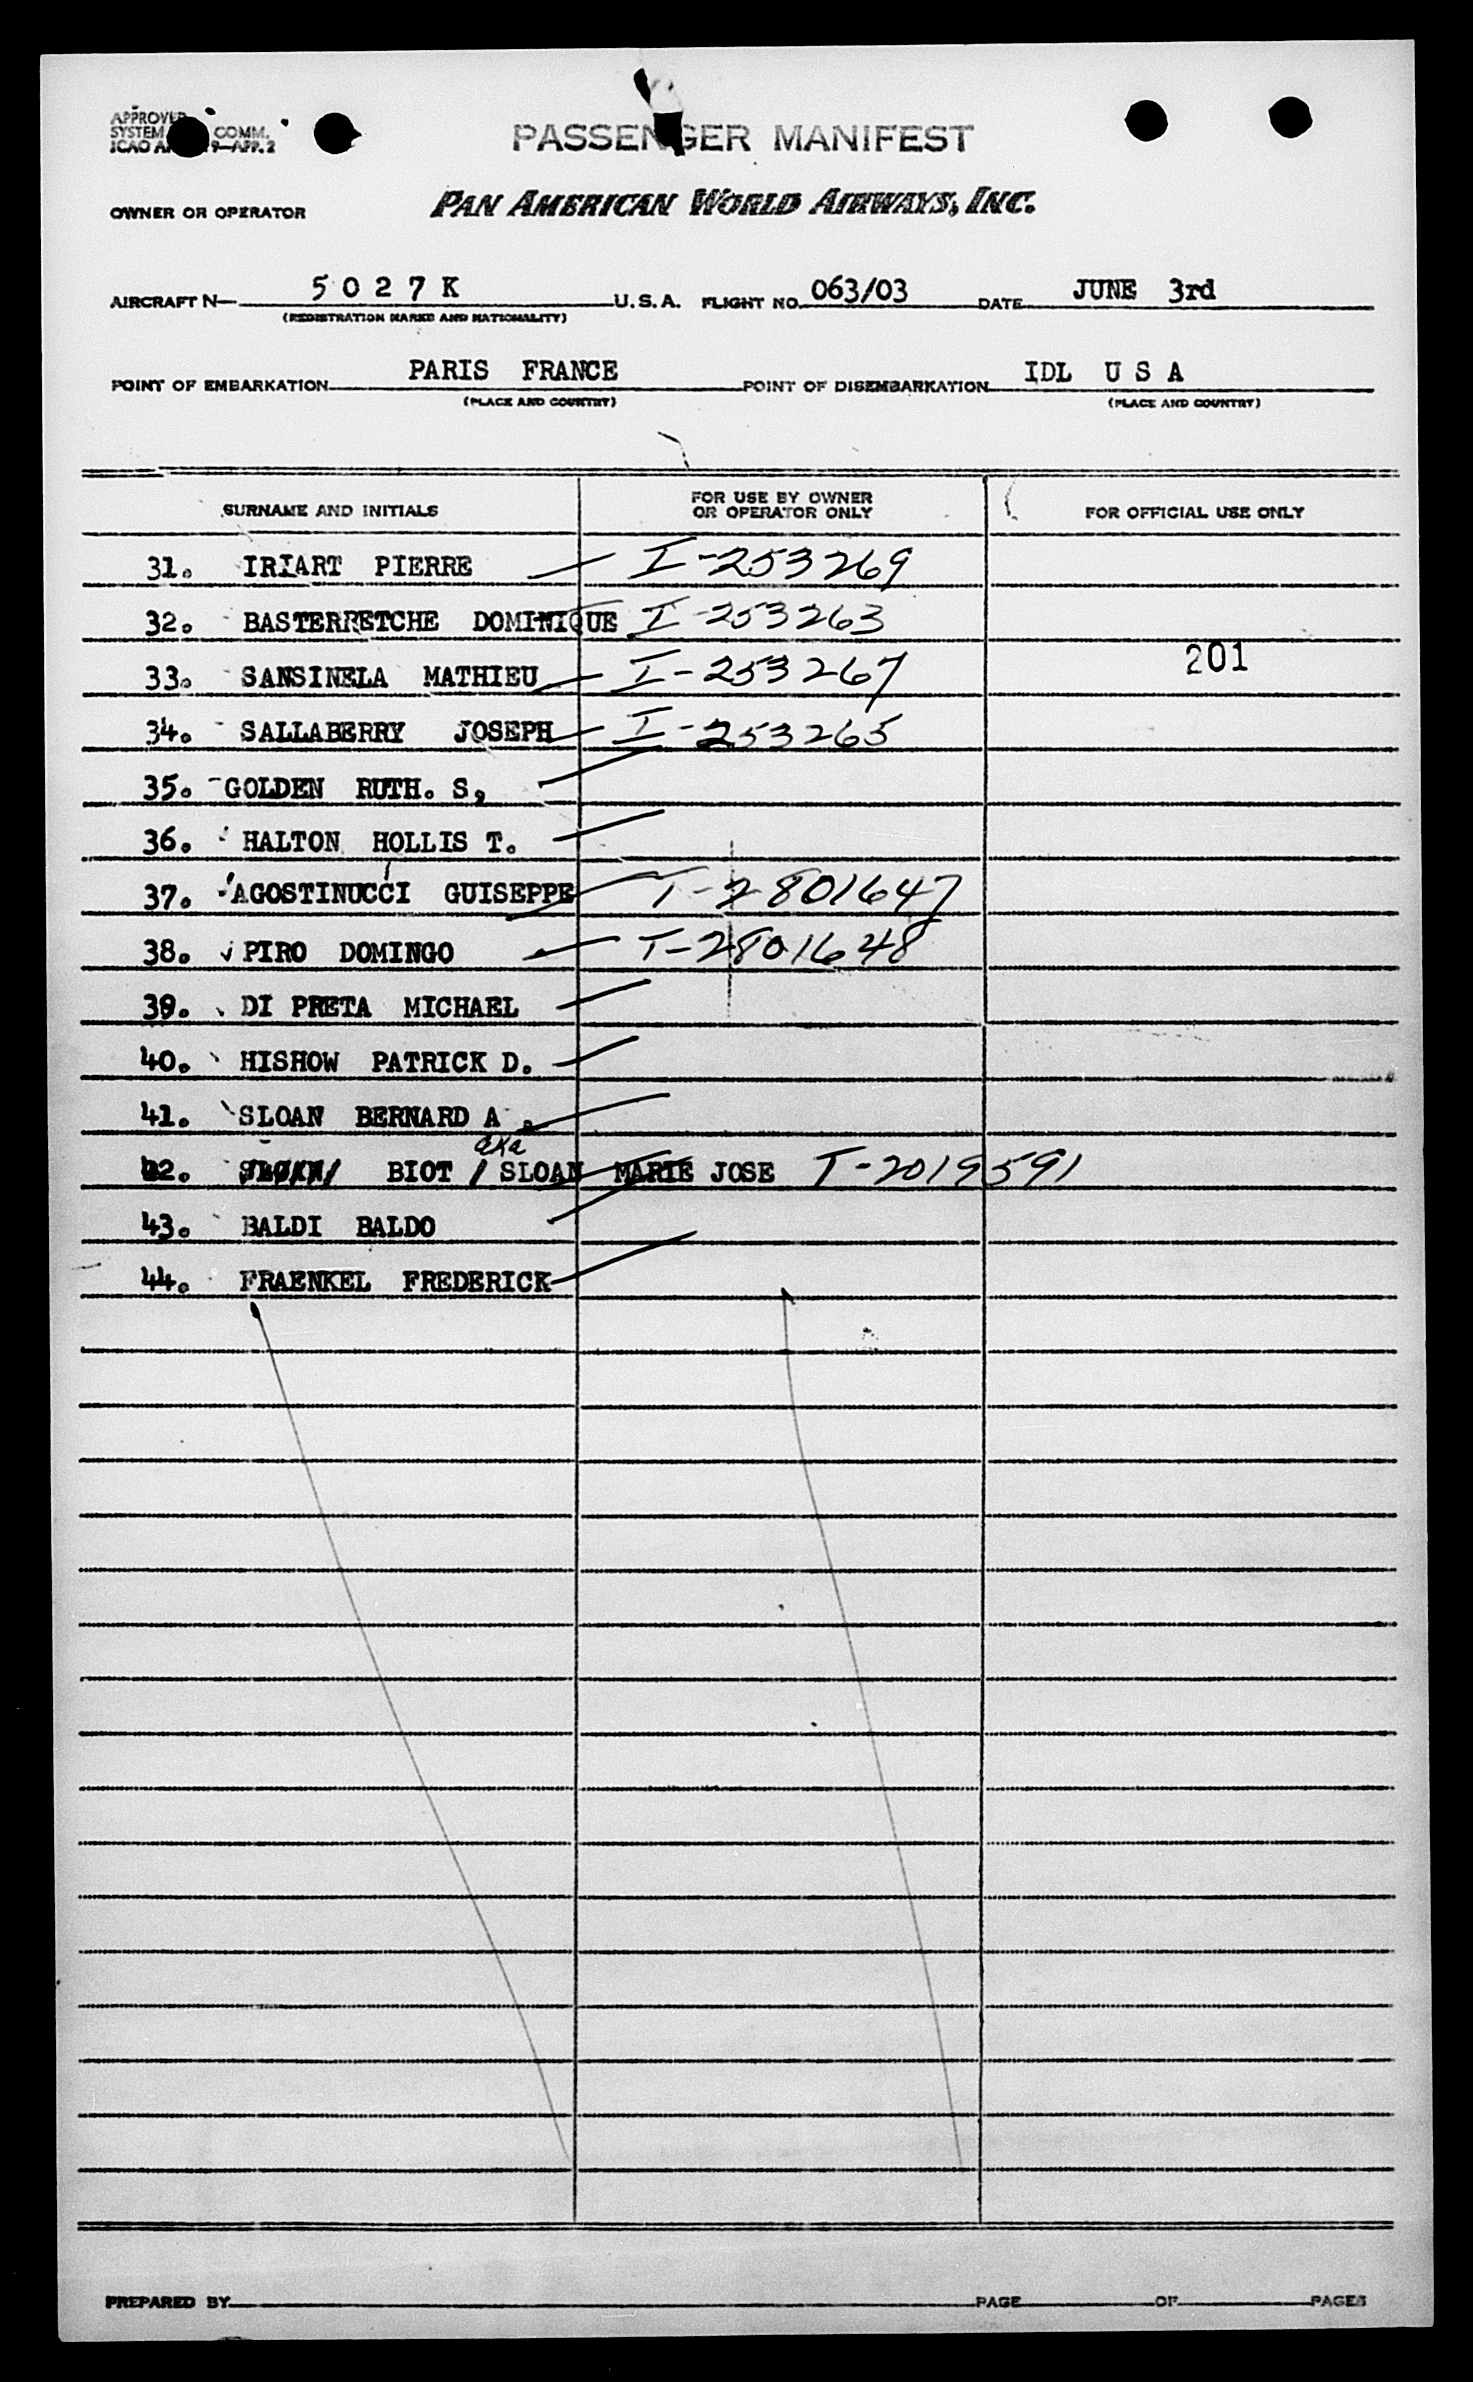 APPROVED
SYSTEM COMM.
ICAO 9—APP. 2
PASSENGER MANIFEST
OWNER OR OPERATOR PAN AMERICAN WORLD AIRWAYS, INC.
AIRCRAFT N— 5 0 2 7 K U.S.A. FLIGHT NO. 063/03 DATE JUNE 3rd
(REGISTRATION MARKS AND NATIONALITY)
POINT OF EMBARKATION PARIS FRANCE POINT OF DISEMBARKATION IDL U S A
(PLACE AND COUNTRY) (PLACE AND COUNTRY)
SURNAME AND INITIALS FOR USE BY OWNER OR OPERATOR ONLY FOR OFFICIAL USE ONLY
31. IRIART PIERRE I-253269
32. BASTERRETCHE DOMINIQUE I-253263
33. SANSINELA MATHIEU I-253267 201
34. SALLABERRY JOSEPH I-253265
35. GOLDEN RUTH. S,
36. HALTON HOLLIS T.
37. AGOSTINUCCI GUISEPPE T-2801647
38. PIRO DOMINGO T-2801648
39. DI PRETA MICHAEL
40. HISHOW PATRICK D.
41. SLOAN BERNARD A.
42. SLOAN BIOT / aka SLOAN MARIE JOSE T-2019591
43. BALDI BALDO
44. FRAENKEL FREDERICK
PREPARED BY PAGE OF PAGES